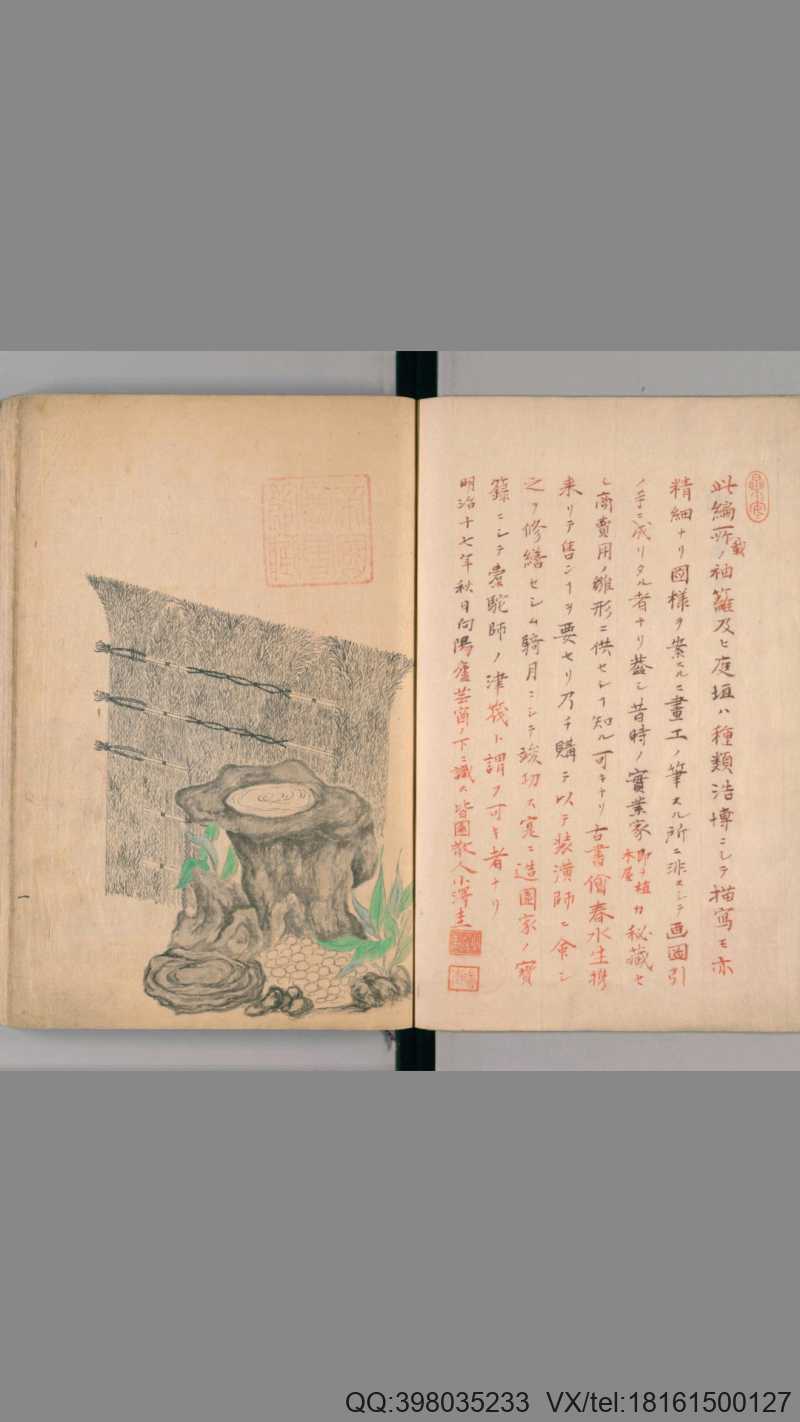 此編所載ノ袖籬及ヒ庭垣ハ種類浩博ニシテ描寫モ亦
精細ナリ図様ヲ案スルニ畫工ノ筆スル所ニ非スシテ画図引
ノ手ニ成リタル者ナリ蓋シ昔時ノ實業家即チ植木屋カ秘蔵セ
シ商賣用ノ雛形ニ供セシ知ル可キナリ古書儈春水生携
来リテ售ンヿヲ要セリ乃チ購テ以テ装潢師ニ命シ
之ヲ修繕セシム騎月ニシテ竣功ス寔ニ造園家ノ寶
籙ニシテ槖駝師ノ津筏ト謂フ可キ者ナリ
明治十七年秋日向陽廬芸窗ノ下ニ識ス皆園散人小澤圭
一
QQ:398035233 VX/tel:18161500127